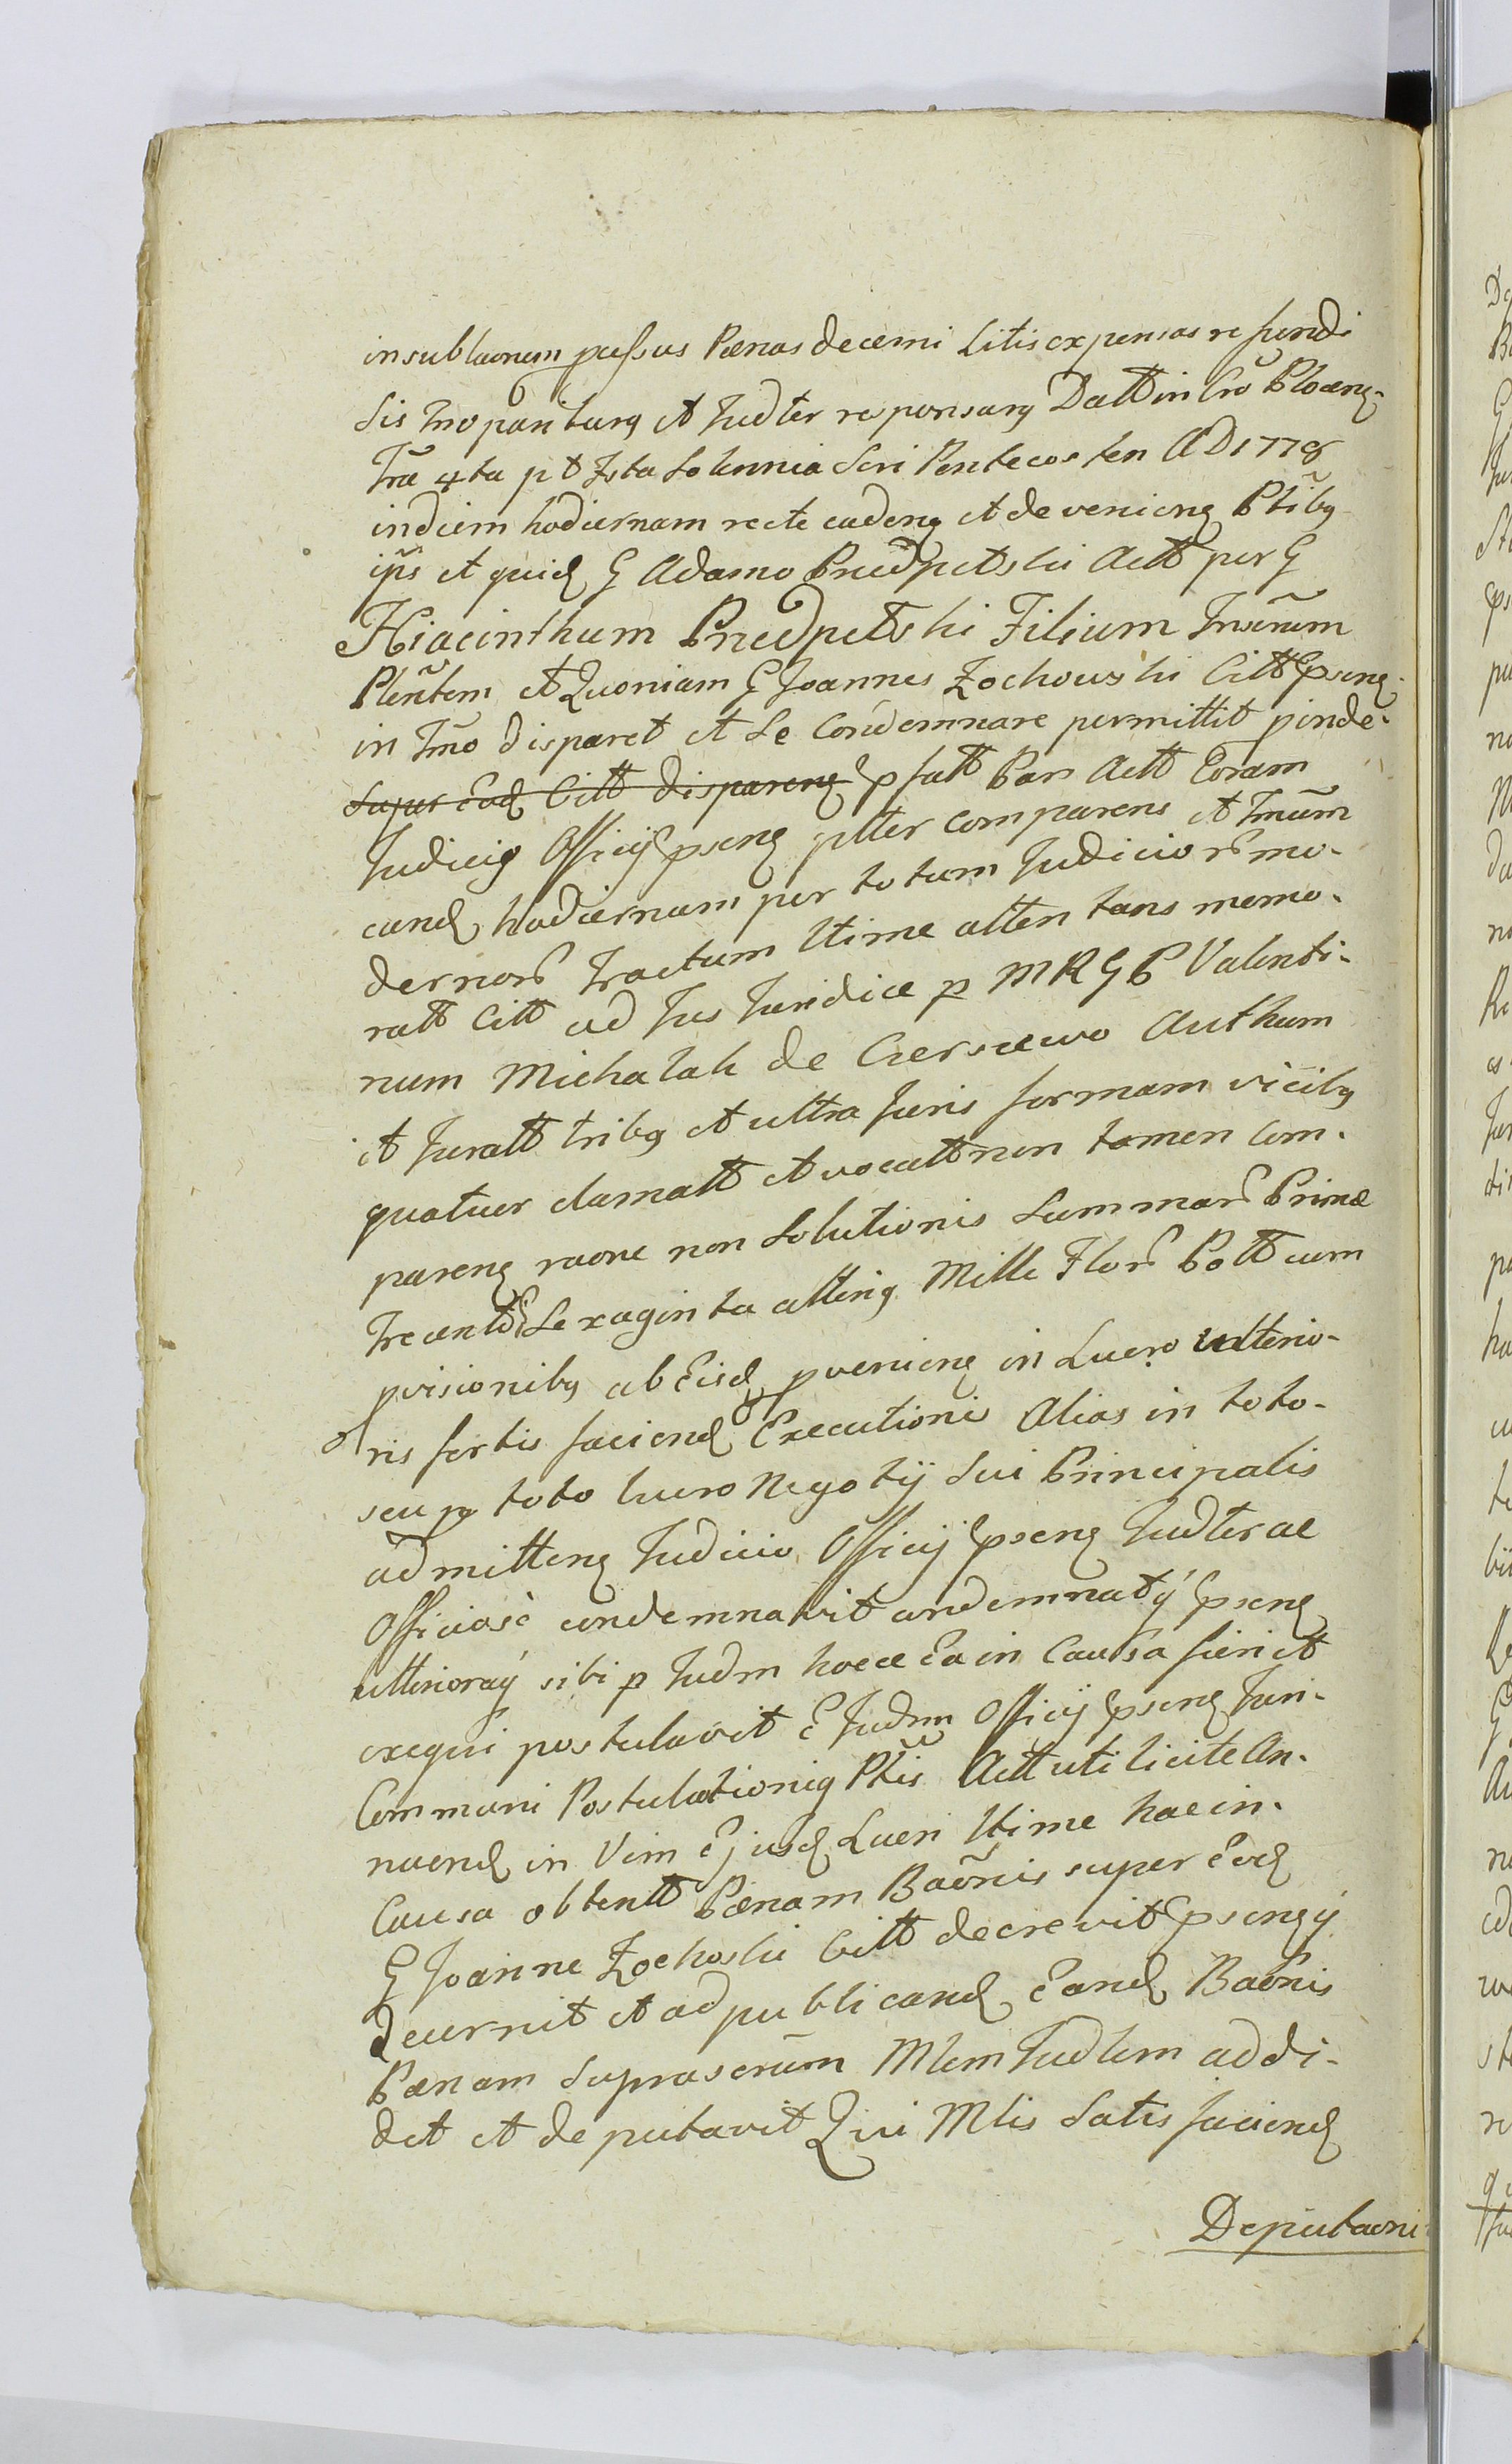 in sublaonem passus Pœnas decerni Litis expensas refundi
Sis Tno pariturg et Judter responsurg Datt in Crō Plocenq
Trā 4ta pt Fsta Solennia Scri Pentecosten AD 1778
in diem hodiernam recte cadenq et devenienq Ptibg
ipis et quidq G Adamo Przedpetski Actt per G
Hiacinthum Przedpetski Filium Inscrūm
Plentem et Quoniam G Joannes Zochowski Citt Psenq
in Tmō disparet et Se Condemnare permittit pinde
Super Eodq Citt disparenq pfatt Pars Actt Coram
Judicig Officij Psenq plter comparens et Tmūm
cand hodiernum per totum Judicior mo-
dernor Tractum ltime atten tans memo-
ratt Citt ad Jus Juridice p MRGP Valenti-
num Michalak de Ciersewo Authum
et Juratt tribg et ultra Juris formam vicibg
quatuor clamatt et vocatt non tamen Com-
parenq raone non Solutionis Summar Primæ
Trecentor Sexaginta alterig Mille Flor Poll cum
pvisionibg ab Eisdq pvenienq in Lucro ulterio-
ris fortis faciendq Executionis Alias in toto-
seu p toto lucro Negotij Sui Principalis
admittenq Judicio Officij Psenq Judter ac
Officiosè condemnavit condemnatq Psenq
ulterioraq sibi p Judm hocce Ea in Causa fieri et
exequi postulavit E Judm Officij Psenq Juri-
Communi Postulationiq Ptis Actt uti licite An-
nuendq in Vim Ejusdq Lucri ltime hac in-
Causa obtentt Pœnam Baōnis super Eodq
G Joanne Zochoski Citt decrevit Psenqq
decernit et ad publicandq Eandq Baōnis
Pœnam Suprascrūm Mlem Judlem addi-
dit et deputavit Qui Mlis Satis faciendq
Deputaoni